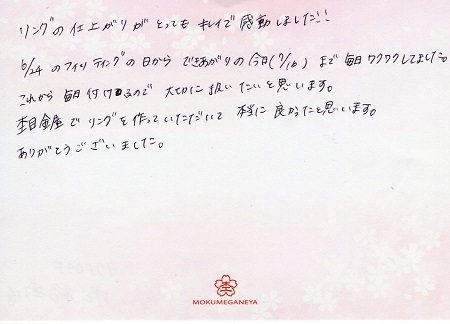 リングの仕上がりがとってもキレイで感動しました!!
6/24 のフィッティングの日から できあがりの今日(7/16) まで毎日ワクワクしてました。
これから 毎日付けるので 大切に扱いたいと思います。
杢目金屋で リングを作っていただいて 本当に 良かったと思います。
ありがとうございました。
杢
MOKUMEGANEYA